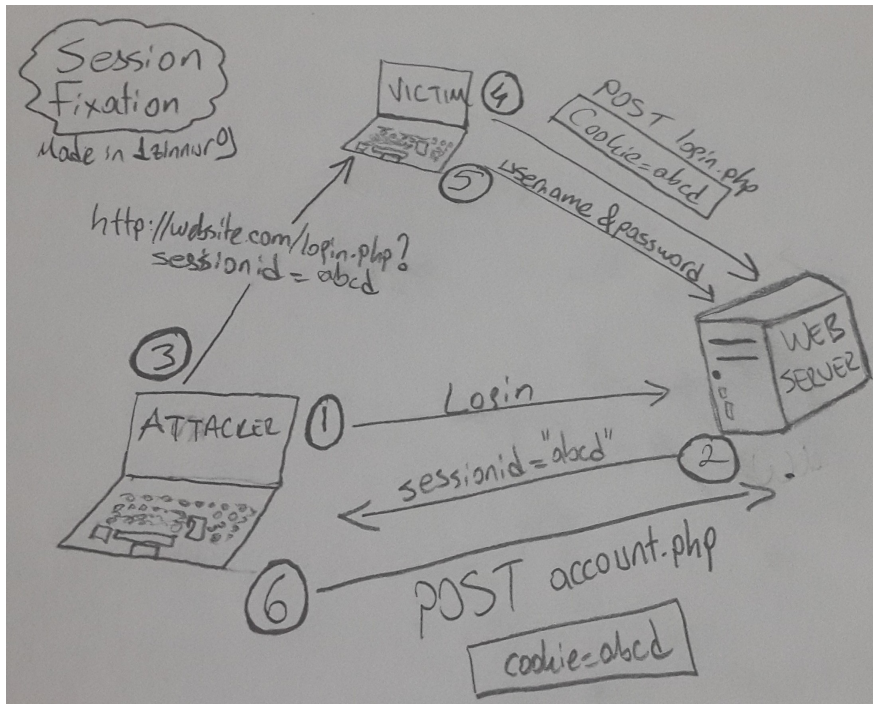 Session
Fixation
Made in
VICTIM
4
POST login.php
Cookie=abcd
5
username & password
http://website.com/login.php?
sessionid=abcd
3
WEB
SERVER
ATTACKER
1
Login
2
sessionid="abcd"
6
POST account.php
cookie=abcd